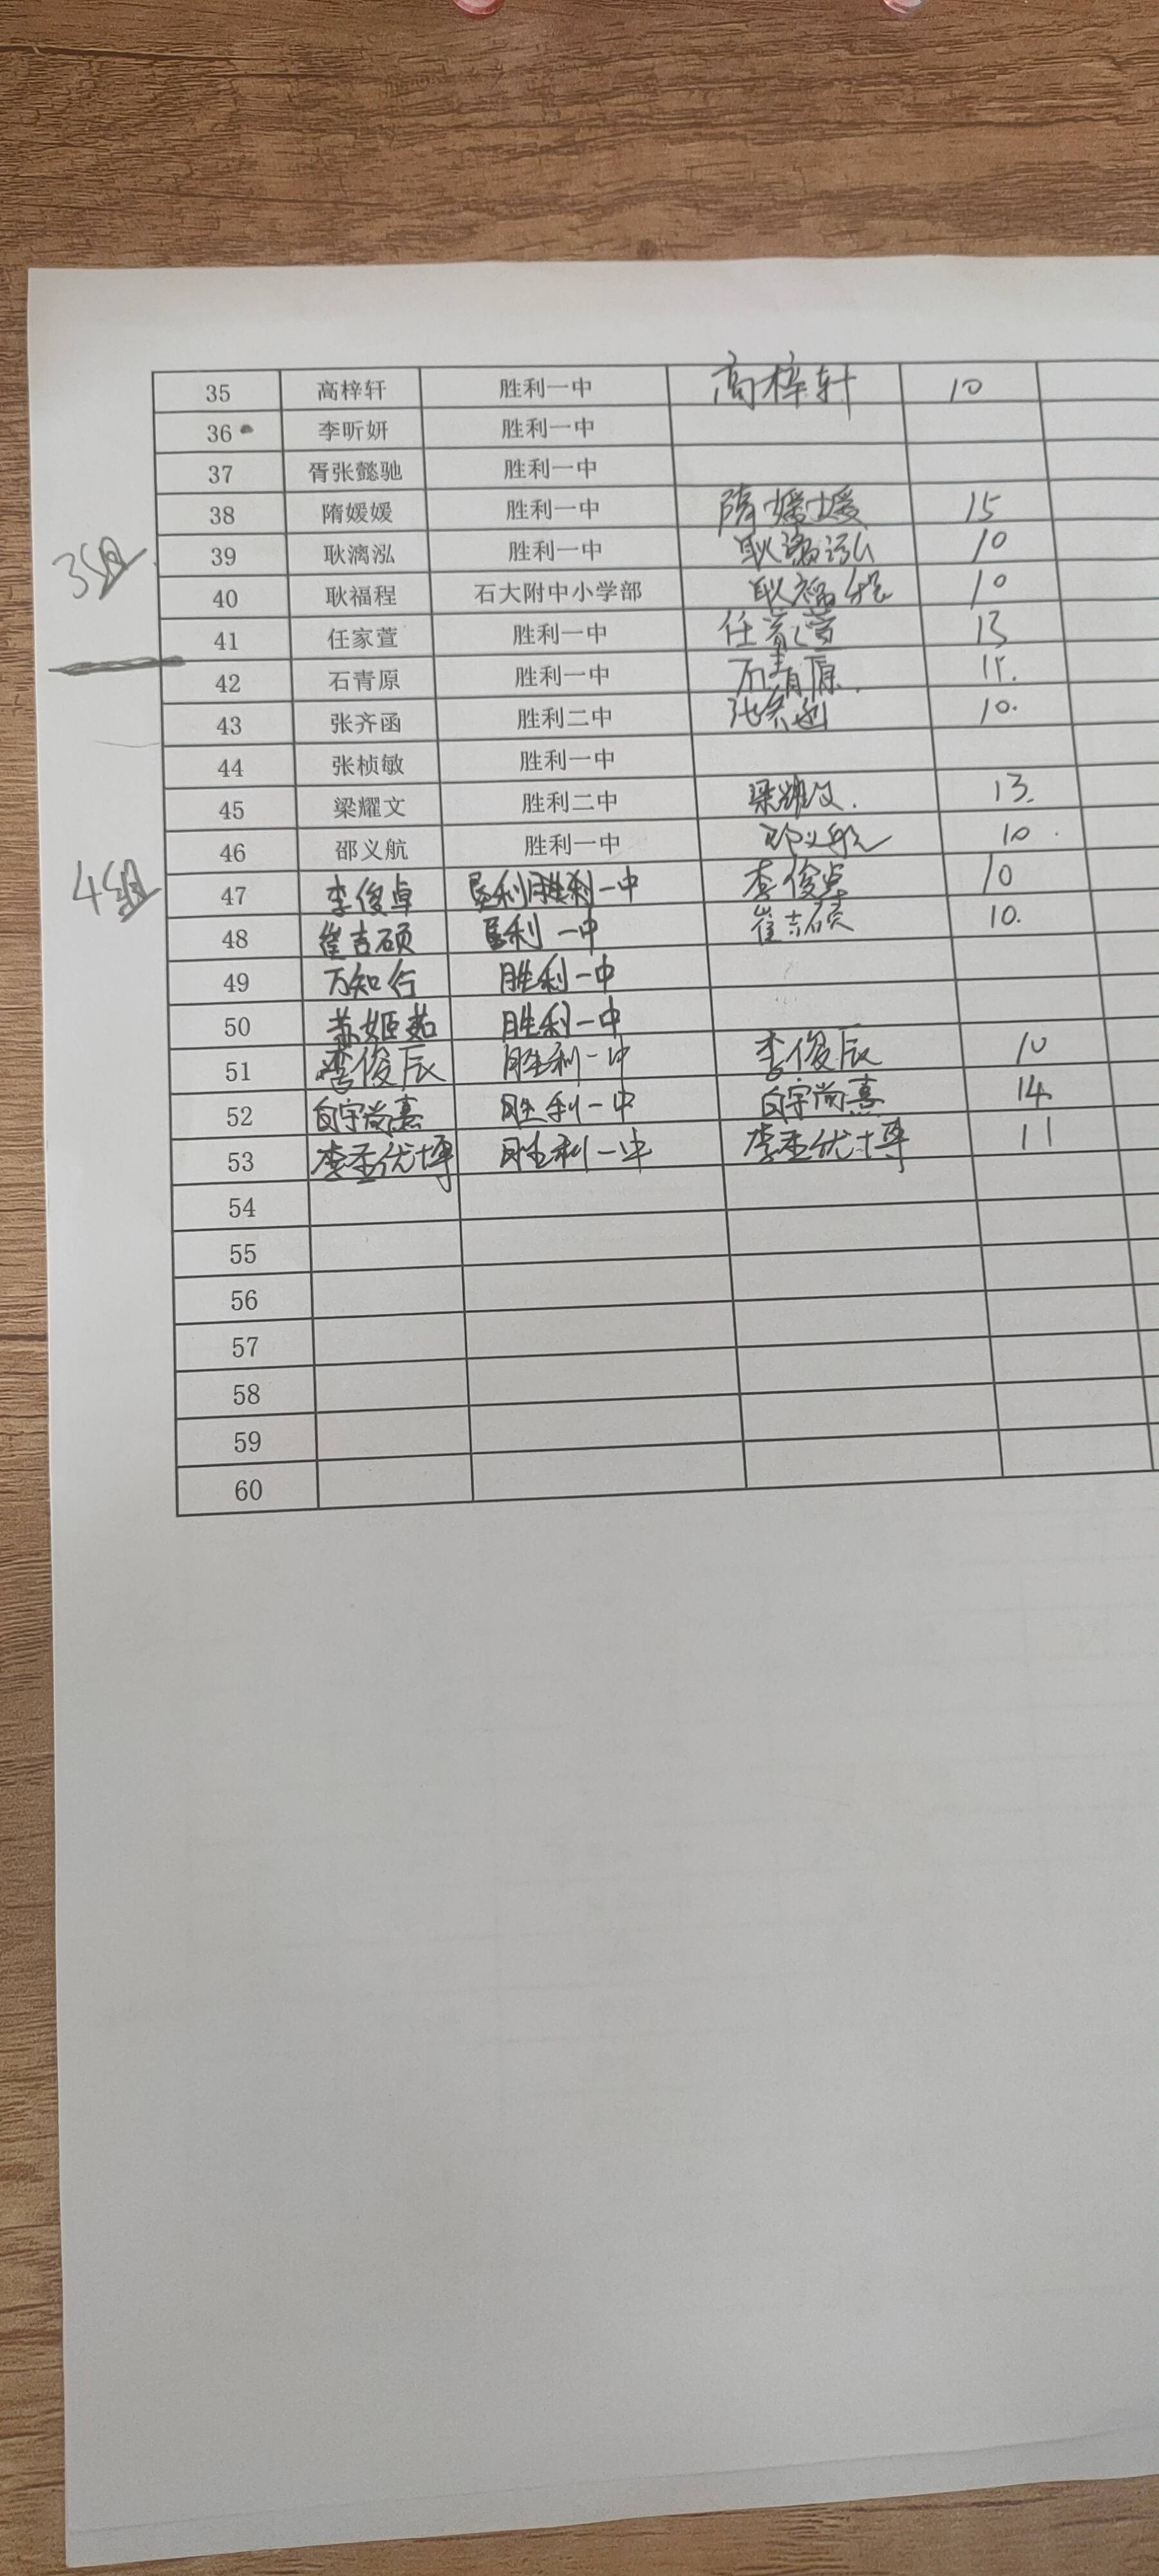 35 高梓轩 胜利一中 高梓轩 10
36 李昕妍 胜利一中
37 胥张懿驰 胜利一中
38 隋媛媛 胜利一中 隋媛媛 15
3组
39 耿漓泓 胜利一中 耿漓泓 10
40 耿福程 石大附中小学部 耿福程 10
41 任家萱 胜利一中 任家萱 13
42 石青原 胜利一中 石青原 11.
43 张齐函 胜利二中 张齐函 10.
44 张桢敏 胜利一中
45 梁耀文 胜利二中 梁耀文. 13.
46 邵义航 胜利一中 邵义航 10.
4组
47 李俊卓 胜利一中 李俊卓 10
48 崔吉硕 垦利一中 崔吉硕 10.
49 万知行 胜利一中
50 苏姬茹 胜利一中
51 李俊辰 胜利一中 李俊辰 10
52 白宇尚熹 胜利一中 白宇尚熹 14
53 李圣优博 胜利一中 李圣优博 11
54
55
56
57
58
59
60